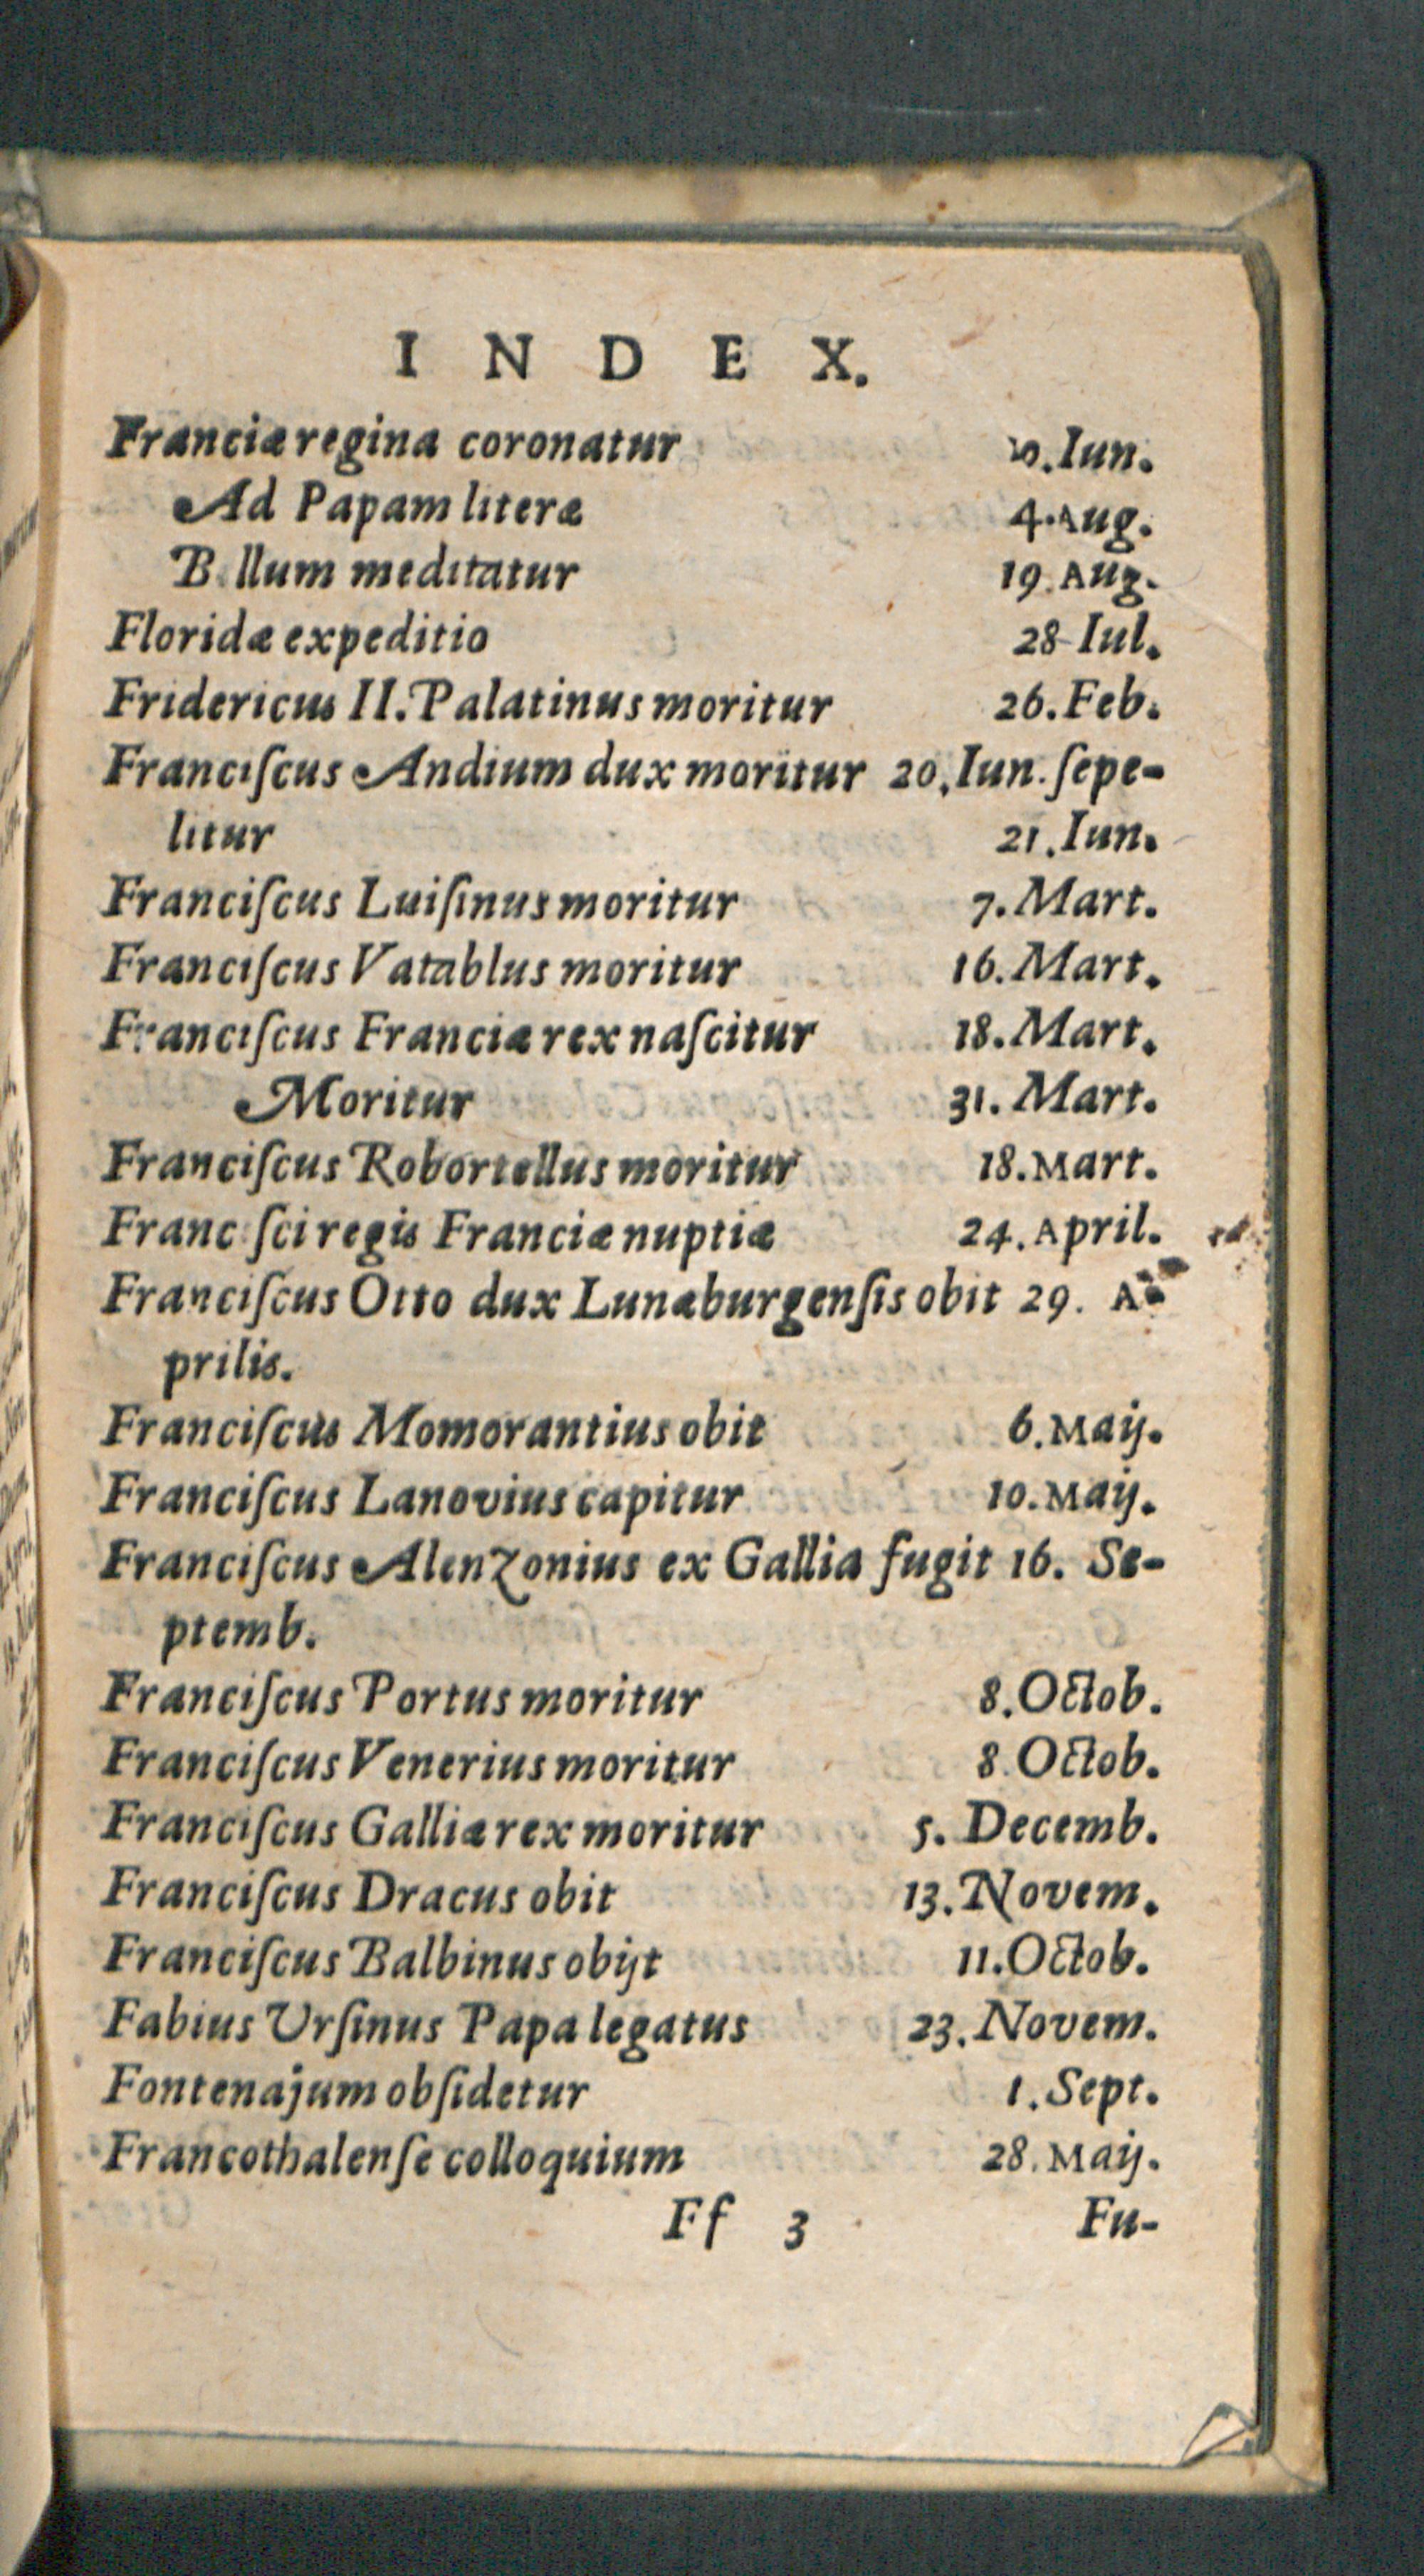 INDEX.
Franciæ regina coronatur .Iun.
Ad Papam literæ 4.Aug.
B llum meditatur 19.Aug.
Floridæ expeditio 28 Iul.
Fridericus II. Palatinus moritur 26.Feb.
Franciſcus Andium dux moritur 20.Iun. ſepe-
litur 21.Iun.
Franciſcus Luiſinus moritur 7.Mart.
Franciſcus Vatablus moritur 16.Mart.
Franciſcus Franciæ rex naſcitur 18.Mart.
Moritur 31. Mart.
Franciſcus Robortellus moritur 18.Mart.
Franc ſci regis Franciæ nuptiæ 24.April.
Franciſcus Otto dux Lunæburgenſis obit 29. A-
prilis.
Franciſcus Momorantius obit 6.Maij.
Franciſcus Lanovius capitur 10.Maij.
Franciſcus Alenzonius ex Gallia fugit 16. Se-
ptemb.
Franciſcus Portus moritur 8.Octob.
Franciſcus Venerius moritur 8.Octob.
Franciſcus Galliæ rex moritur 5. Decemb.
Franciſcus Dracus obit 13.Novem.
Franciſcus Balbinus obijt 11.Octob.
Fabius Urſinus Papa legatus 23.Novem.
Fontenajum obſidetur 1.Sept.
Francothalenſe colloquium 28.Maij.
Ff 3 Fu-